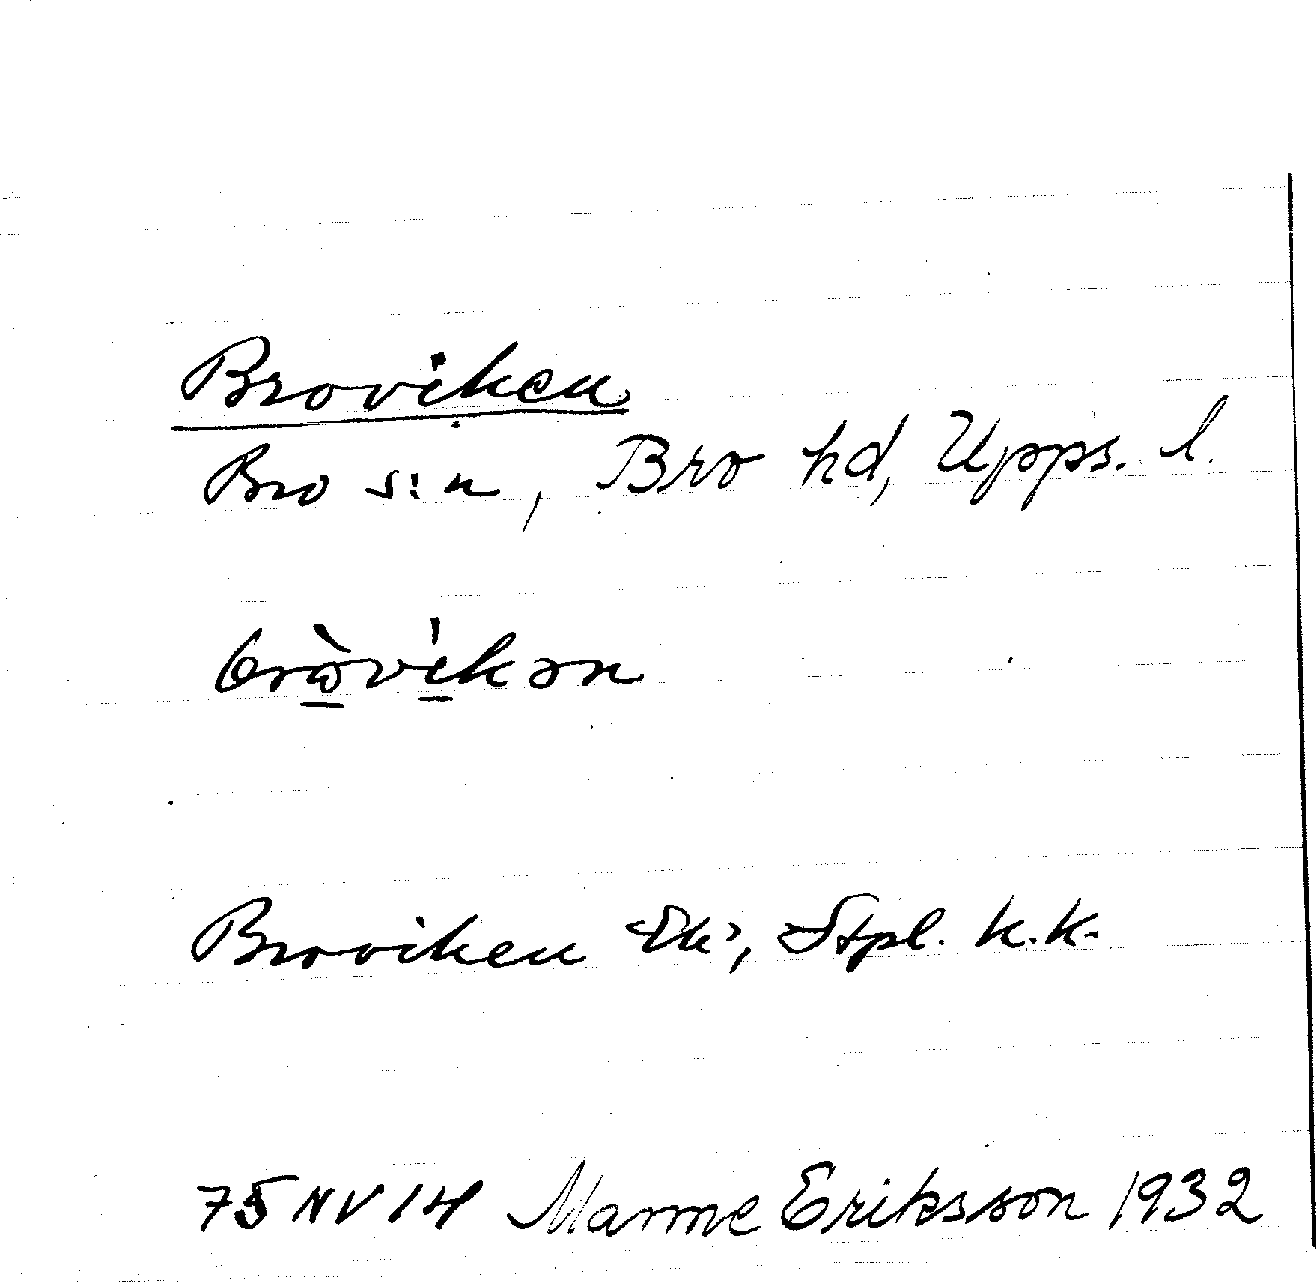 Broviken
Bro s:n, Bro hd, Upps. l.
brὼ̲vi̲̍kən
Broviken Ek, Stpl. k.k.
75 NV 14 Manne Eriksson 1932